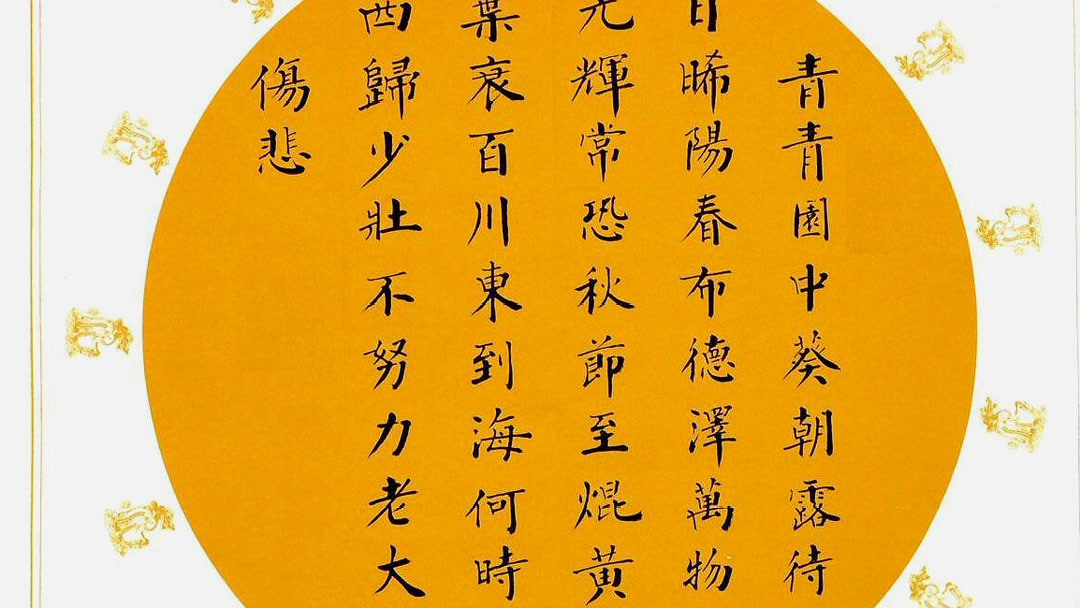 青青園中葵朝露待
日晞陽春布德澤萬物
光輝常恐秋節至焜黃
葉衰百川東到海何時
西歸少壯不努力老大
傷悲